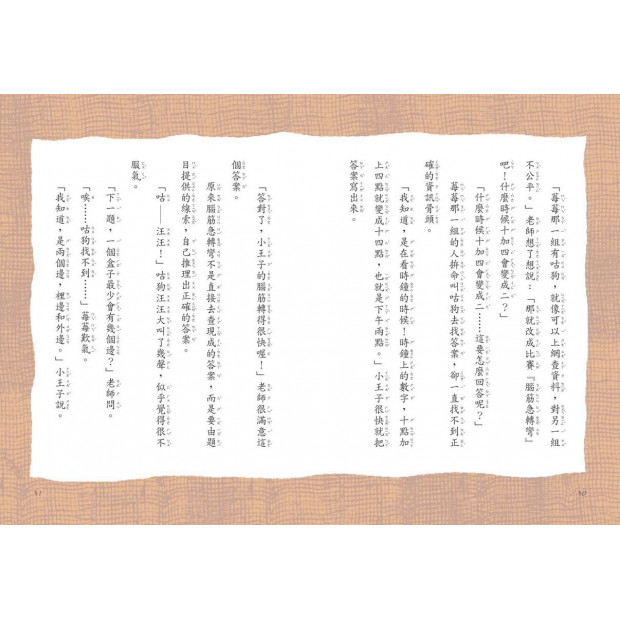 「莓莓那一組有咕狗，就像可以上網查資料，對另一組
不公平。」老師想了想說：「那就改成比賽『腦筋急轉彎』
吧！什麼時候十加四會變成二？」
「什麼時候十加四會變成二……這要怎麼回答呢？」
莓莓那一組的人拚命叫咕狗去找答案，卻一直找不到正
確的資訊骨頭。
「我知道，是在看時鐘的時候！時鐘上的數字，十點加
上四點就變成十四點，也就是下午兩點。」小王子很快就把
答案寫出來。
80
「答對了，小王子的腦筋轉得很快喔！」老師很滿意這
個答案。
原來腦筋急轉彎不是直接去查現成的答案，而是要由題
目提供的線索，自己推理出正確的答案。
「咕——汪汪！」咕狗汪汪大叫了幾聲，似乎覺得很不
服氣。
「下一題，一個盒子最少會有幾個邊？」老師問。
「唉……咕狗找不到……」莓莓歎氣。
「我知道，是兩個邊，裡邊和外邊。」小王子說。
81